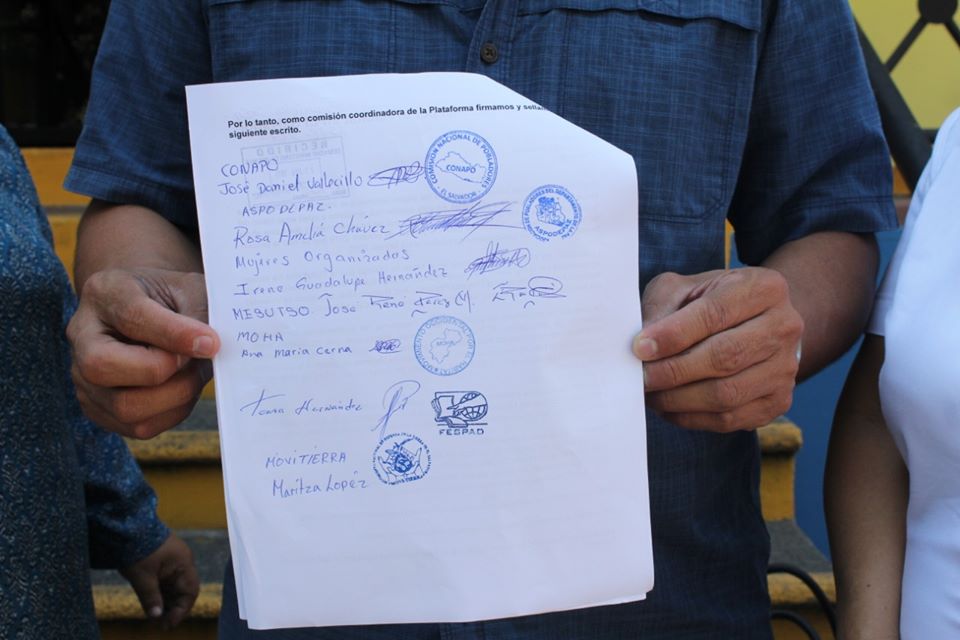 Por lo tanto, como comisión coordinadora de la Plataforma firmamos y
siguiente escrito.
RECIBIDO
CONAPO
José Daniel Vallecillo
COMISIÓN NACIONAL DE POBLADORES
CONAPO
EL SALVADOR
ASPODEPAZ.
Rosa Amelia Chávez
ASPODEPAZ
Mujeres Organizadas
Irene Guadalupe Hernández
MESUTSO. José René Pérez
MOHA
Ana Maria Cerna
MOVIMIENTO OCCIDENTAL POR EL HABITAT
MOHA
Hernández
FESPAD
MOVITIERRA
Maritza López